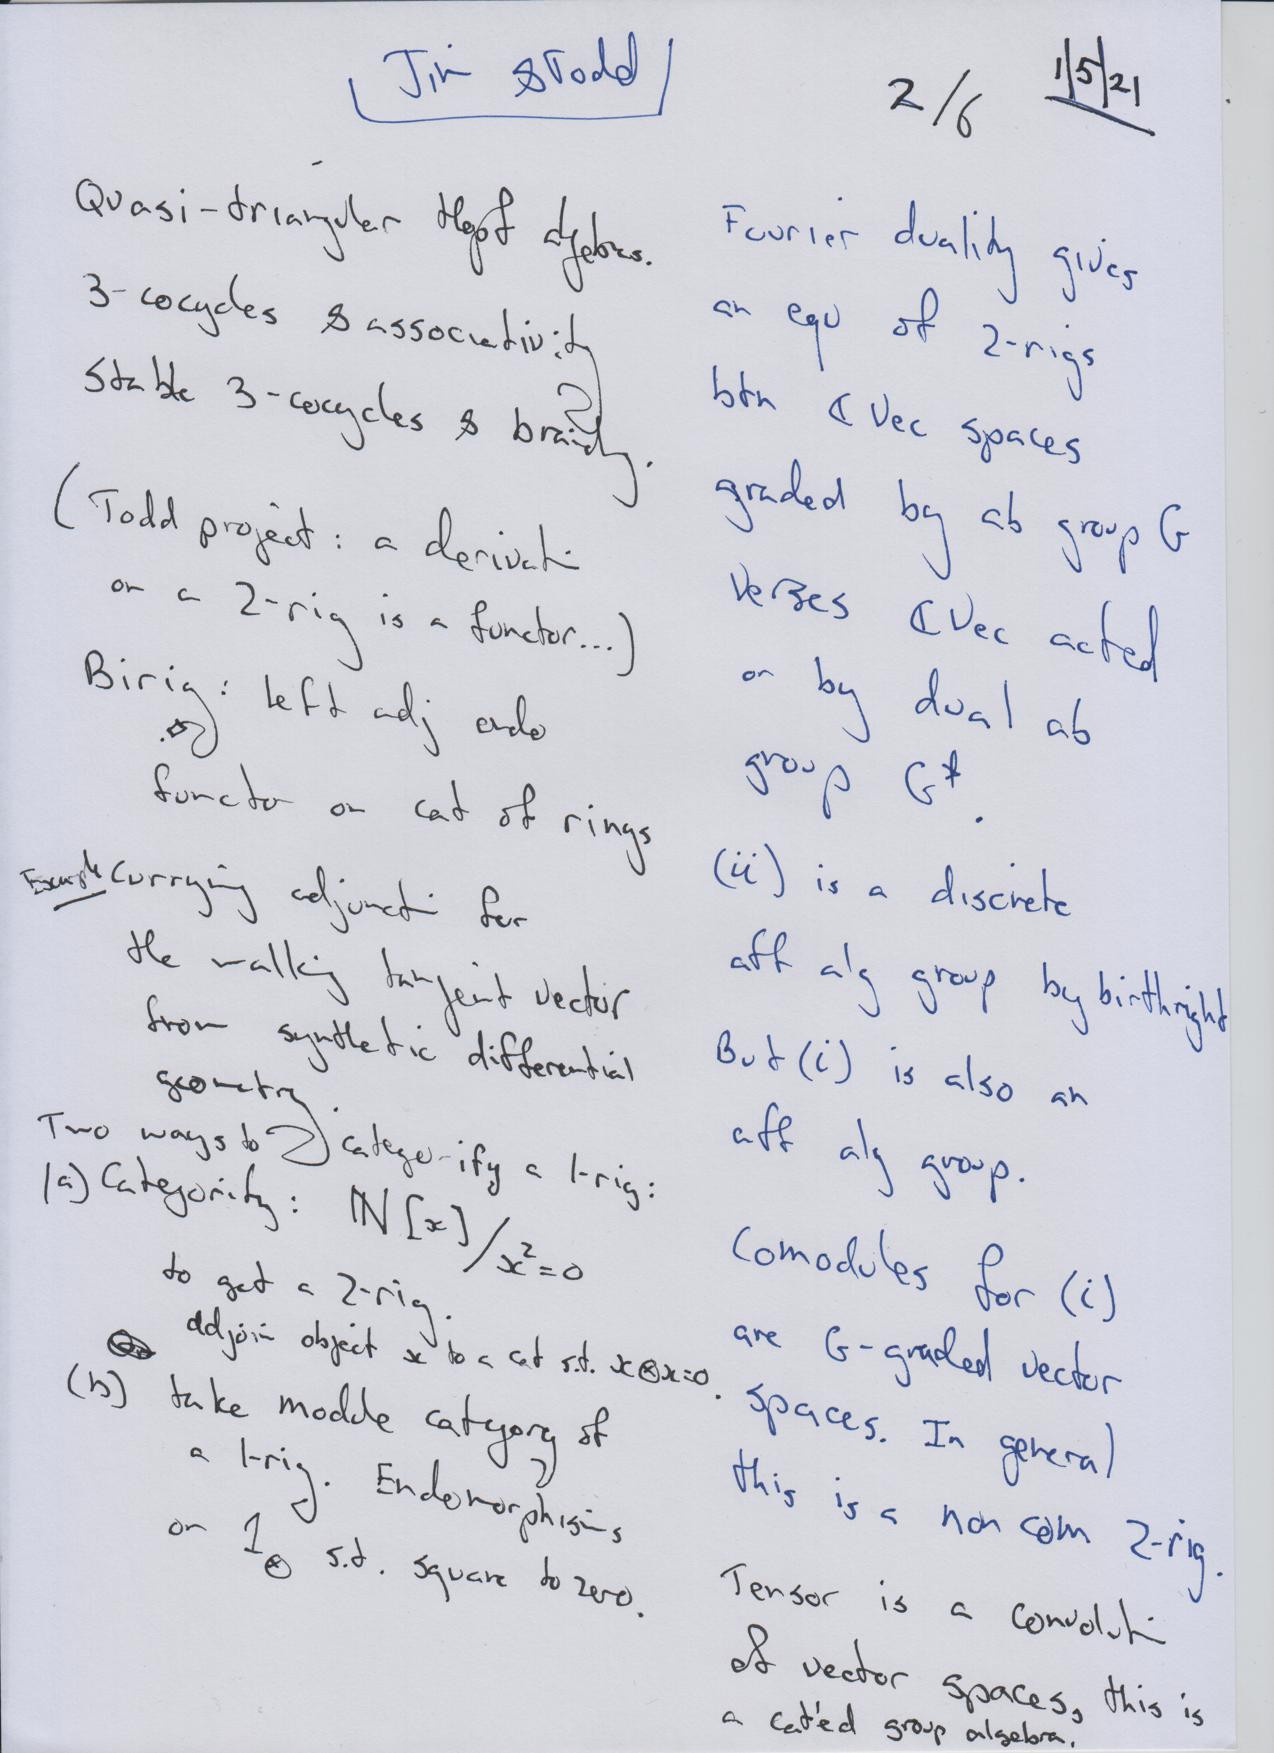 Jim & Todd
2/6
1/5/21
Quasi-triangular Hopf algebras.
3-cocycles & associativity
Stable 3-cocycles & braidg.
(Todd project: a derivati
on a 2-rig is a functor...)
Birig: left adj endo
functor on cat of rings
Example Currying adjuncti for
the walking tangent vector
from synthetic differential
geometry.
Two ways to categorify a 1-rig:
(a) Categority: ℕ[x]/x²=0
to get a 2-rig.
adjoin object x to a cat s.t. x⊗x=0.
(b) take module category of
a 1-rig. Endomorphisms
on 1⊗ s.t. square to zero.
Fourier duality gives
an equ of 2-rigs
btn ℂVec spaces
graded by ab group G
verses ℂVec acted
on by dual ab
group G*.
(ii) is a discrete
aff alg group by birthright
But (i) is also an
aff alg group.
Comodules for (i)
are G-graded vector
spaces. In general
this is a non com 2-rig.
Tensor is a convoluti
of vector spaces, this is
a cat'ed group algebra.